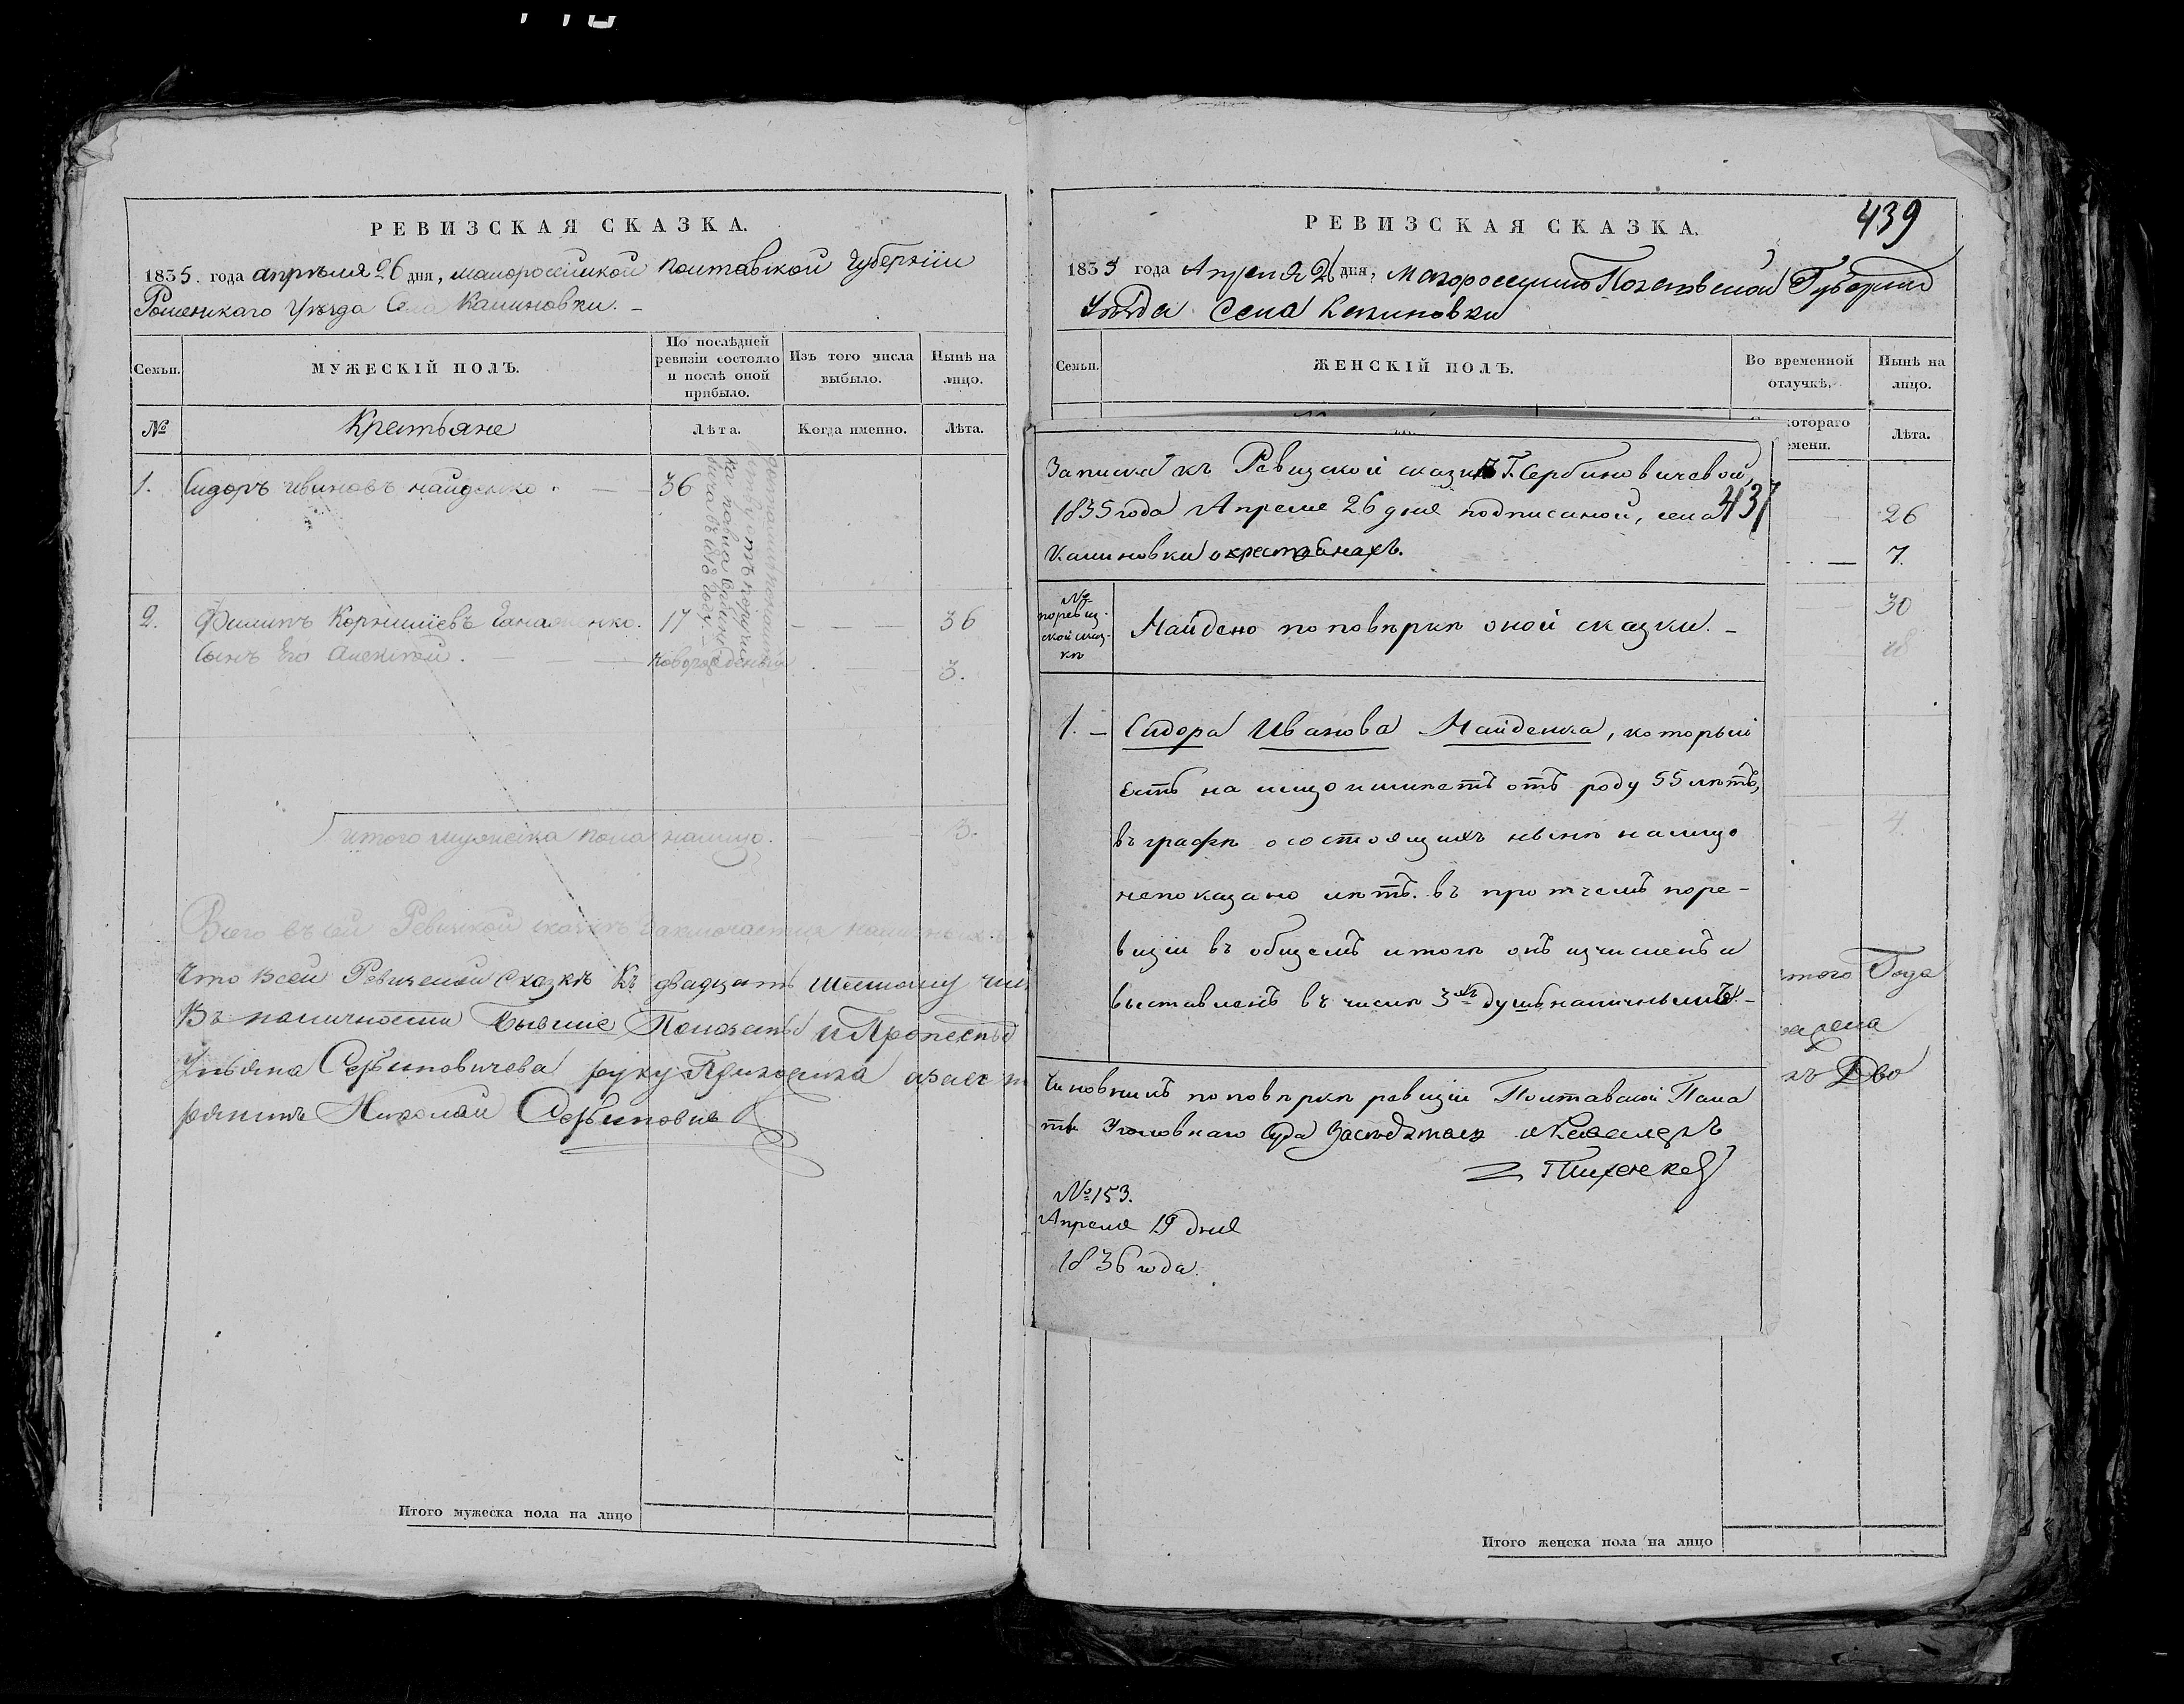 РЕВИЗСКАЯ СКАЗКА.
1835. года апрѣля 26 дня, малороссійской Полтавской Губерніи
Роменскаго Уѣзда Села Калиновки.
Семьи.
МУЖЕСКІЙ ПОЛЪ.
По послѣдней ревизіи состояло и послѣ оной прибыло.
Изъ того числа выбыло.
Нынѣ на лицо.
№
Крестьяне
Лѣта.
Когда именно.
Лѣта.
1. Сидоръ Ивановъ Найденко. 36
2. Филипъ Корнилиевъ 17 36
Сынъ Его Алексѣй. новорожденный 3.
итого мужеска пола налицо. 3.
Всего въ сей Ревизской сказкѣ заключается наличныхъ
Что въ сей Ревизской Сказкѣ Къ двадцать шестому
Въ наличности Бывшие Показаны
Ульяна Сербиновичева руку Приложила
Николай Сербинович
Итого мужеска пола на лицо
РЕВИЗСКАЯ СКАЗКА.
439
1835 года Апреля 26 дня, Малороссийской Полтавской Губернии
Уѣзда Села Калиновки
Семьи.
ЖЕНСКІЙ ПОЛЪ.
Во временной отлучкѣ.
Нынѣ на лицо.
котораго
мени.
Лѣта.
Записка къ Ревизской сказкѣ Г. Сербиновичевой,
1835 года Апреля 26 дня подписаной, села
437
Калиновки о крестьянахъ.
№ по ревизской сказкѣ
Найдено по повѣркѣ оной сказки. –
1. – Сидора Иванова Найденка, который
есть на лицо и имѣетъ отъ роду 55 лѣтъ,
въ графѣ о состоящихъ нынѣ налицо
непоказано лѣтъ. въ протчемъ по ре–
визіи въ общемъ итогѣ онъ изчисленъ и
выставленъ въ числѣ 3хъ душъ наличныхъ. –
Чиновникъ по повѣркѣ ревизіи Полтавской Пала
ты Уголовнаго Суда Засѣдатель и Кавалеръ
№ 153.
Апреля 19 дня
1836 года.
26
7.
30
18
4.
Года
Дво
Итого женска пола на лицо